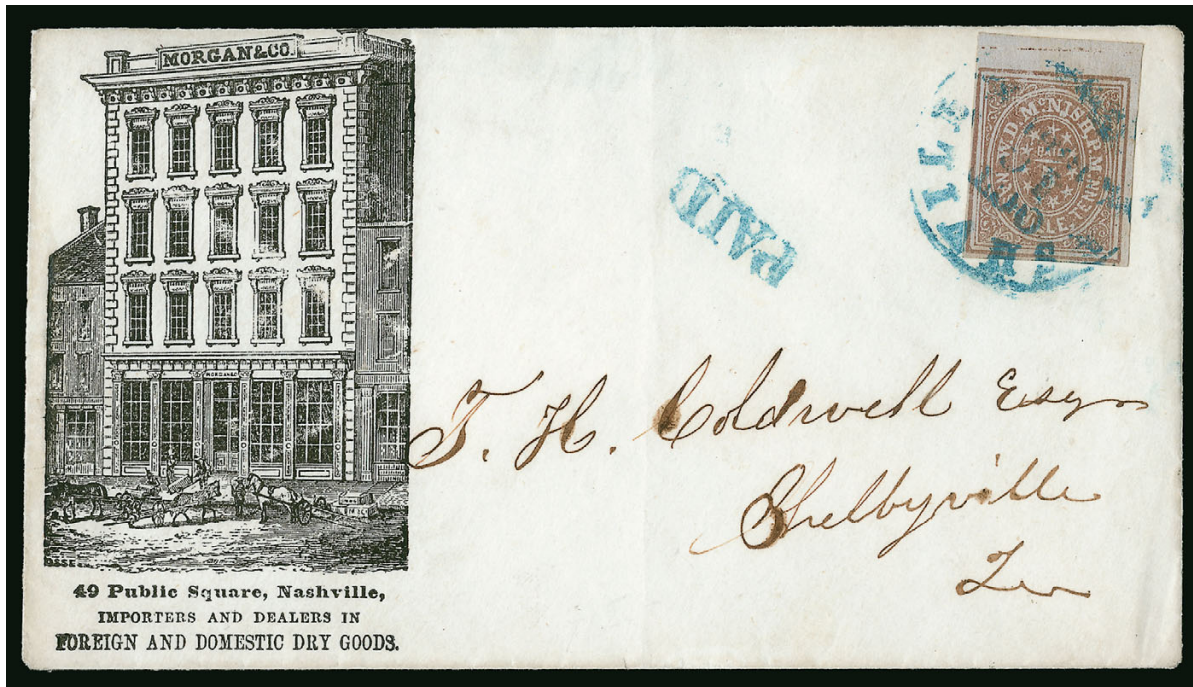 MORGAN&CO.
MORGAN&CO
49 Public Square, Nashville,
IMPORTERS AND DEALERS IN
FOREIGN AND DOMESTIC DRY GOODS.
PAID
W.D. McNISH. P.M.
T. H. Coldwell Esqr
Shelbyville
Ten